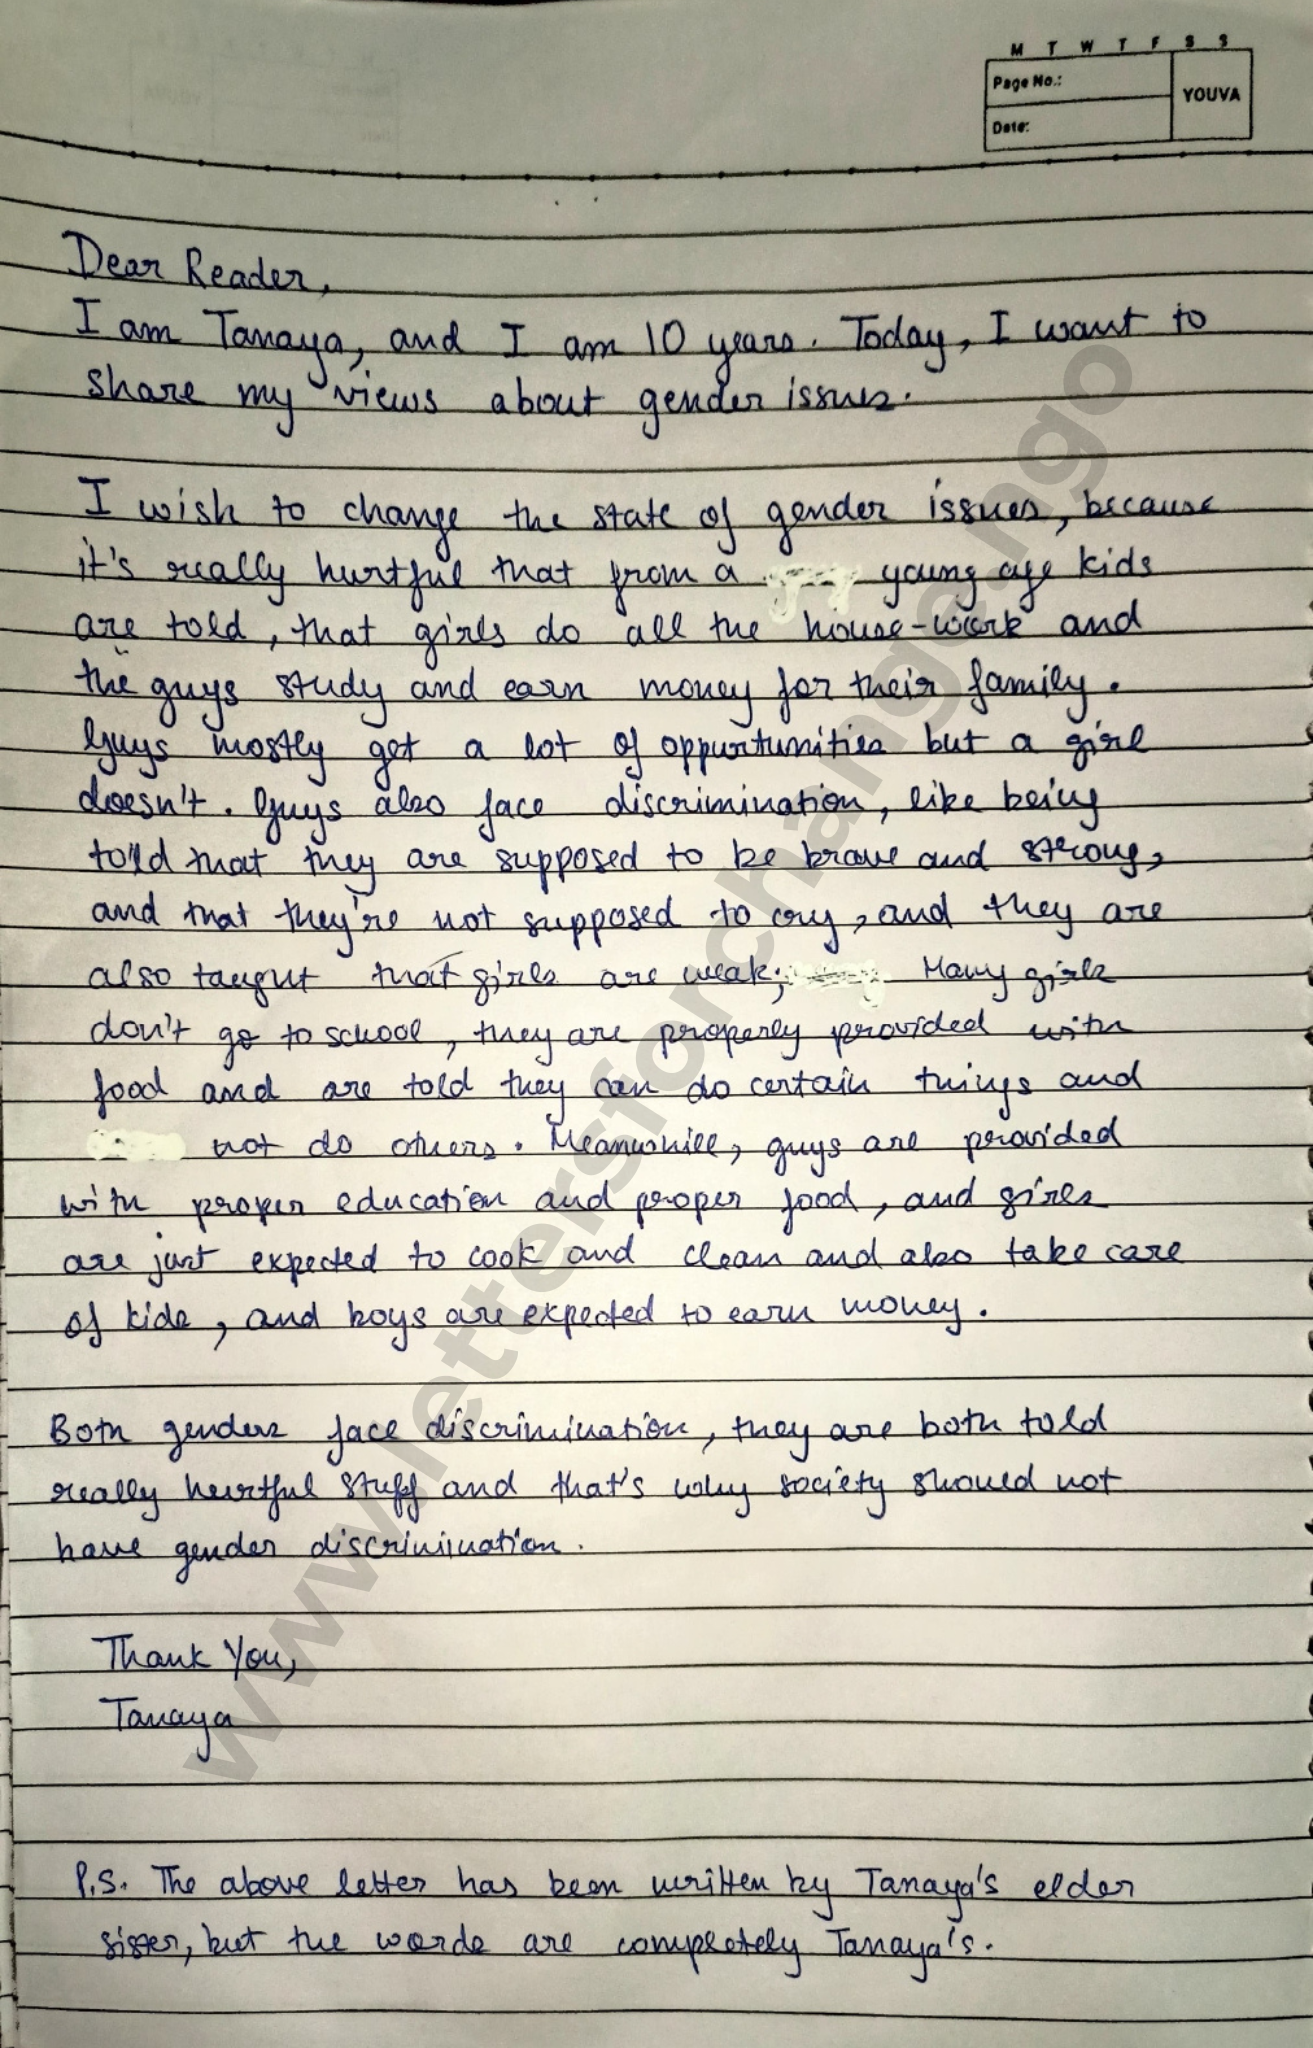 M T W T F S S
Page No.:
YOUVA
Date:
Dear Reader,
I am Tanaya, and I am 10 years. Today, I want to
share my views about gender issues.
I wish to change the state of gender issues, because
it's really hurtful that from a young age kids
are told, that girls do all the house-work and
the guys study and earn money for their family.
Guys mostly get a lot of oppurtunities but a girl
doesn't. Guys also face discrimination, like being
told that they are supposed to be brave and strong,
and that they're not supposed to cry, and they are
also taught that girls are weak; Many girls
don't go to school, they are properly provided with
food and are told they can do certain things and
not do others. Meanwhile, guys are provided
with proper education and proper food, and girls
are just expected to cook and clean and also take care
of kids, and boys are expected to earn money.
Both genders face discrimination, they are both told
really hurtful stuff and that's why society should not
have gender discrimination.
Thank You,
Tanaya
P.S. The above letter has been written by Tanaya's elder
sister, but the words are completely Tanaya's.
www.lettersforchange.ngo